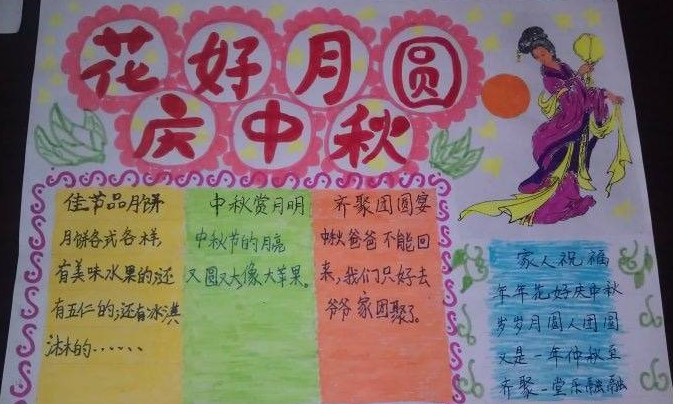 花好月圆
庆中秋
佳节品月饼
月饼各式各样,
有美味水果的;还
有五仁的;还有冰淇
淋的......
中秋赏月明
中秋节的月亮
又圆又大像大苹果。
齐聚团圆宴
爸爸不能回
来,我们只好去
爷爷家团聚了。
家人祝福
年年花好庆中秋
岁岁月圆人团圆
又是一年仲秋
齐聚一堂乐融融